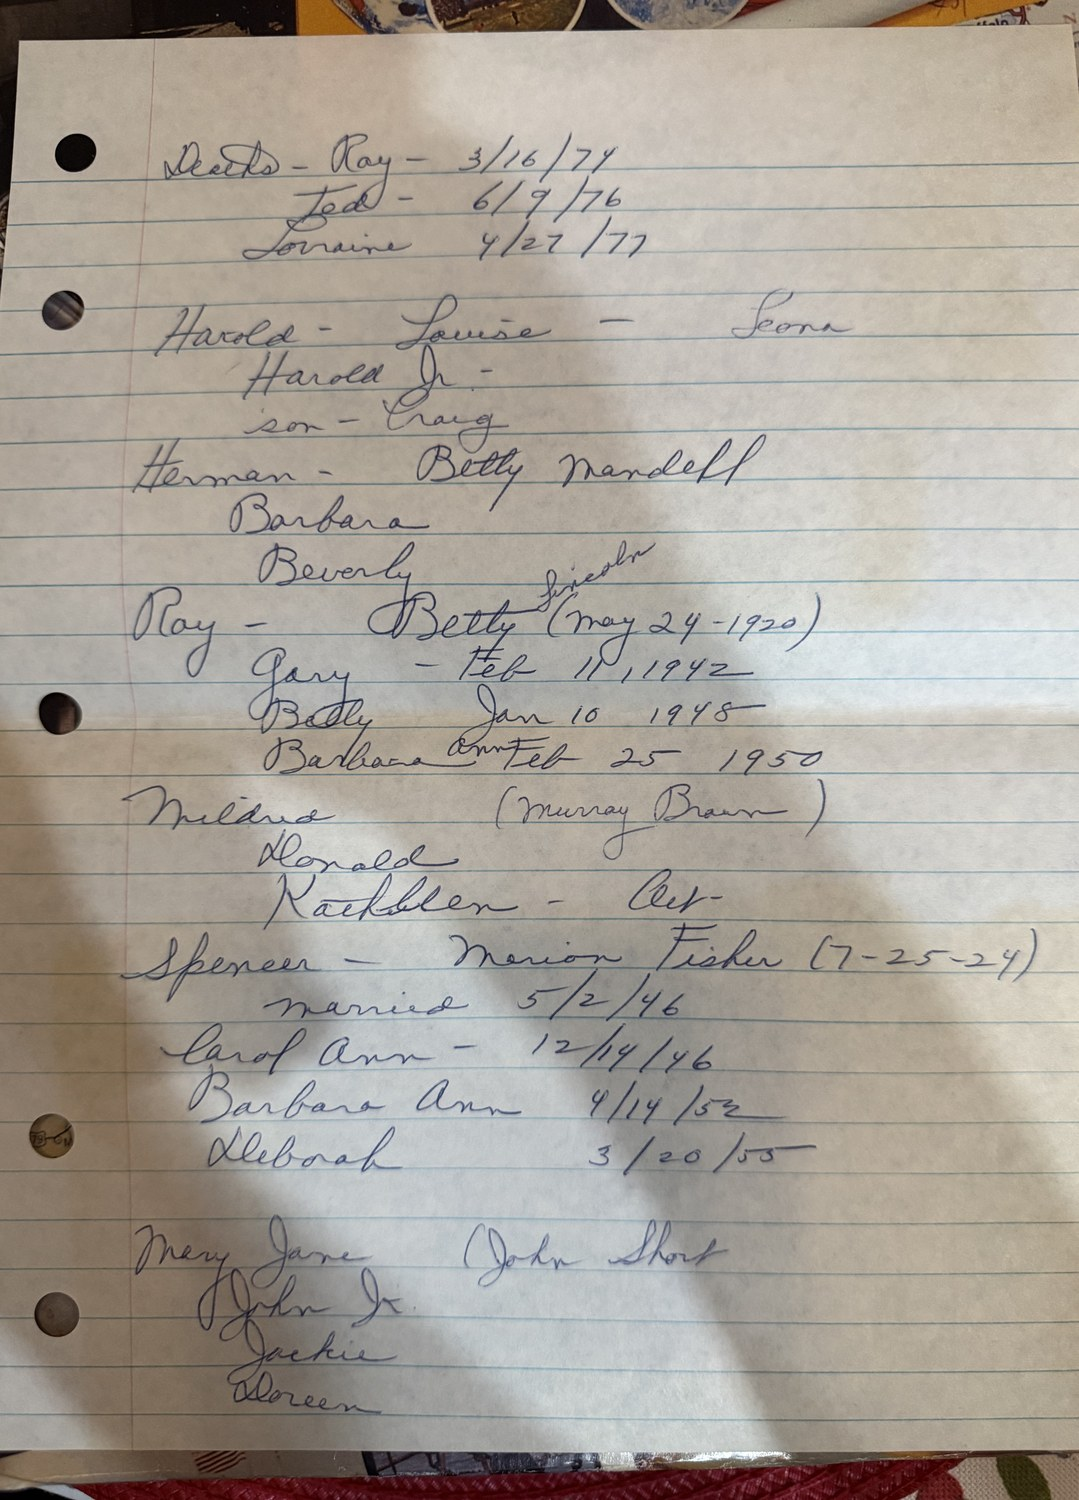 Deaths - Ray - 3/16/74
Ted - 6/9/76
Lorraine 4/27/77
Harold - Louise - Leona
Harold Jr. -
son - Craig
Herman - Betty Mandell
Barbara
Beverly
Lincoln
Ray - Betty (May 24-1920)
Gary - Feb 11, 1942
Betty Jan 10 1948
Barbara Ann Feb 25 1950
Mildred (Murray Braun)
Donald
Kathleen - Oct-
Spencer - Marion Fisher (7-25-24)
married 5/2/46
Carol Ann - 12/14/46
Barbara Ann 4/14/52
Deborah 3/20/55
Mary Jane (John Short
John Jr.
Jackie
Doreen